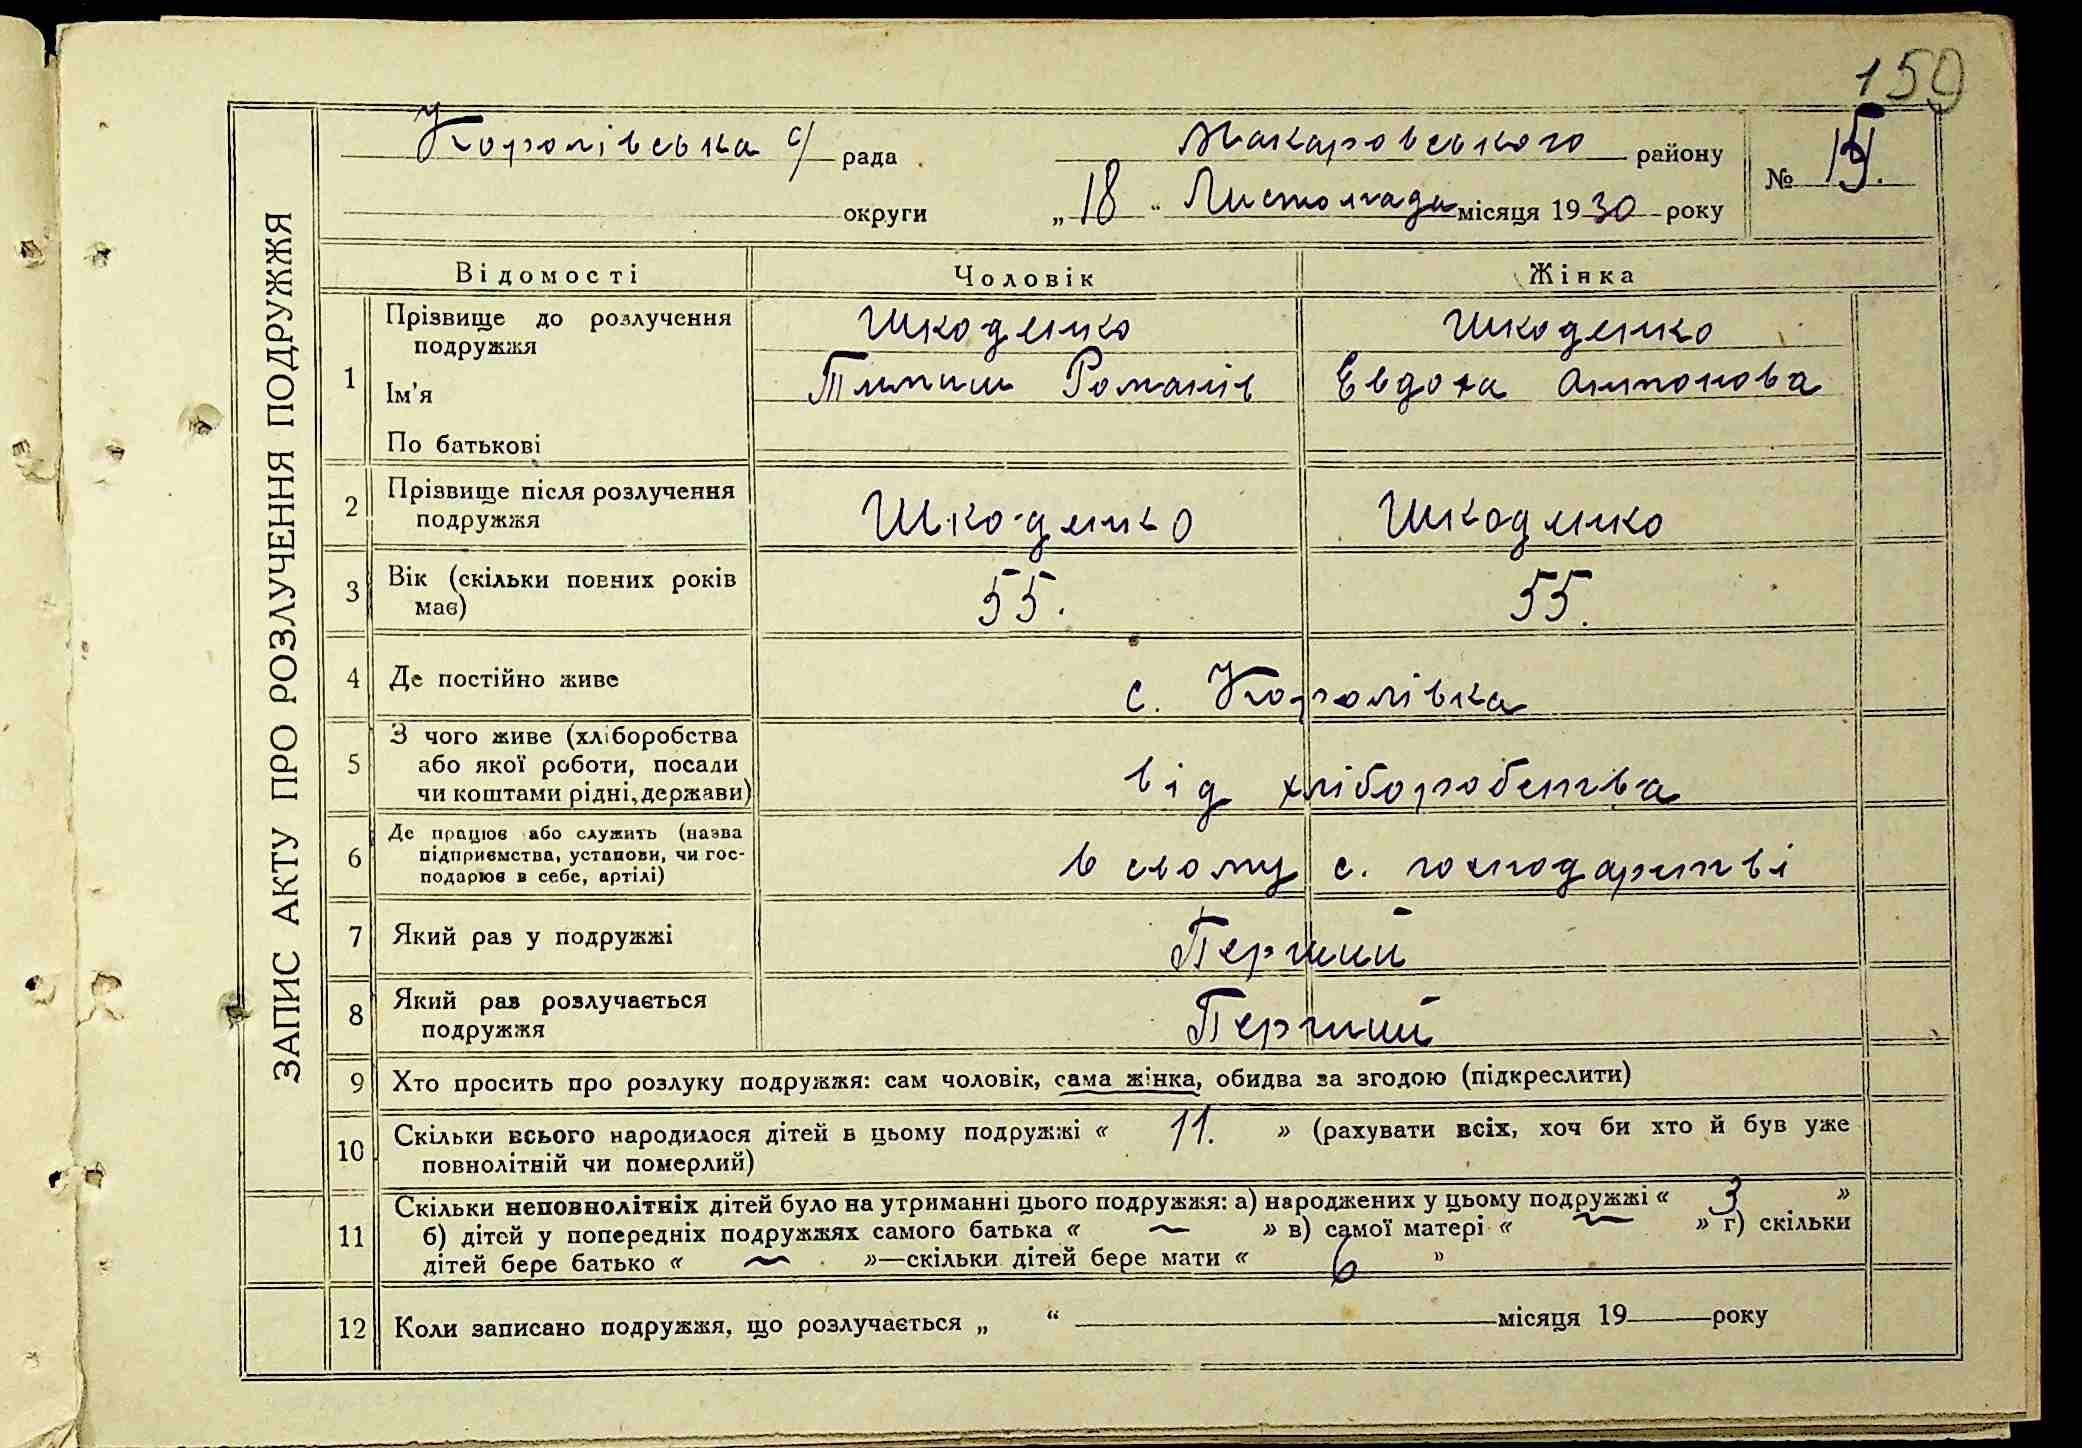 159
ЗАПИС АКТУ ПРО РОЗЛУЧЕННЯ ПОДРУЖЖЯ
Королівська с/ рада Макаровського району
№
округи „18“ Листопада місяця 1930 року
Відомості Чоловік Жінка
1 Прізвище до розлучення Шкоденко Шкоденко
подружжя
Ім'я Тимиш Романів Евдоха Антонова
По батькові
2 Прізвище після розлучення Шкоденко Шкоденко
подружжя
3 Вік (скільки повних років 55. 55.
має)
4 Де постійно живе с. Королівка
З чого живе (хліборобства
5 або якої роботи, посади від хліборобства
чи коштами рідні, держави)
Де працює або служить (назва
6 підприємства, установи, чи гос- в свому с. господарстві
подарює в себе, артілі)
7 Який раз у подружжі Перший
8 Який раз розлучається Перший
подружжя
9 Хто просить про розлуку подружжя: сам чоловік, сама жінка, обидва за згодою (підкреслити)
10 Скільки всього народилося дітей в цьому подружжі « 11. » (рахувати всіх, хоч би хто й був уже
повнолітній чи померлий)
Скільки неповнолітніх дітей було на утриманні цього подружжя: а) народжених у цьому подружжі « 3 »
11 б) дітей у попередніх подружжях самого батька « — » в) самої матері « — » г) скільки
дітей бере батько « — »—скільки дітей бере мати « 6 »
12 Коли записано подружжя, що розлучається „ “ місяця 19 року